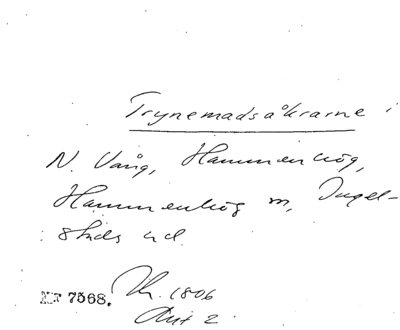 Trynemadsåkrarne i
N. Vång, Hammenhög,
Hammenhög m, Ingel-
stads hd
NF 7568. Kr. 1806
Akt 2